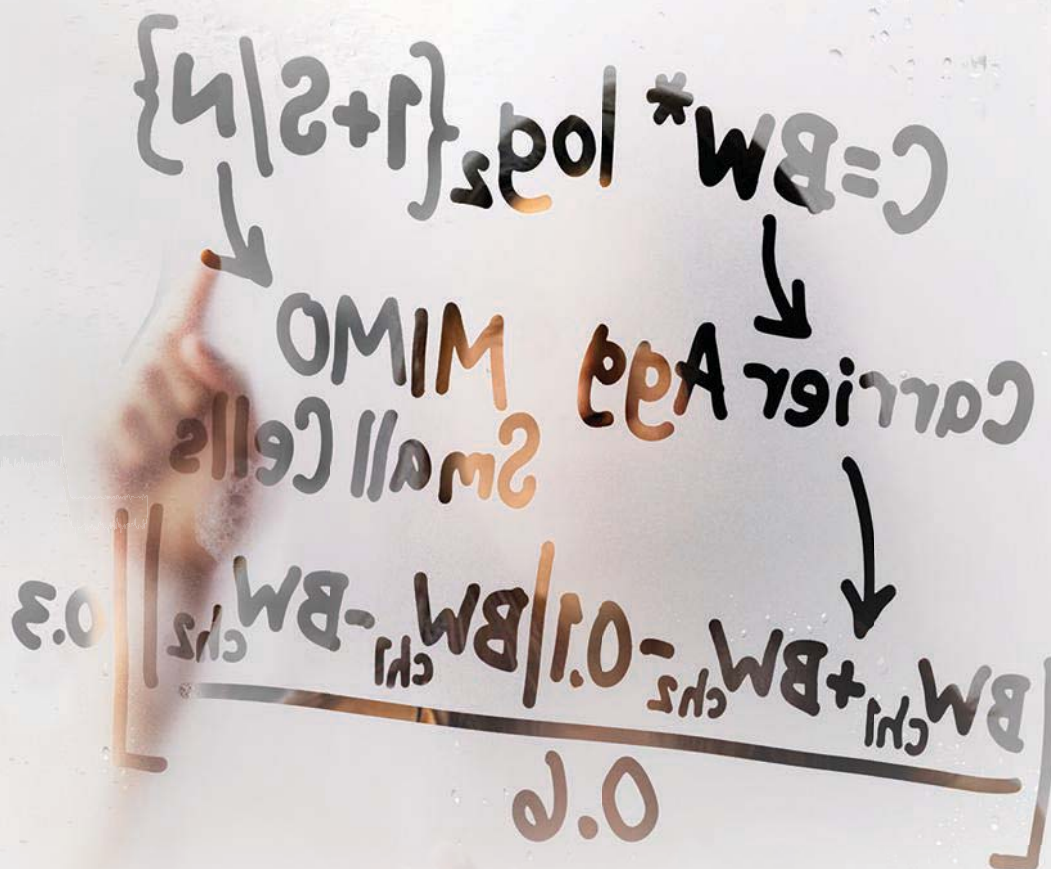 C=BW* log₂{1+S/N}
Carrier Agg MIMO
Small Cells
[BWch1+BWch2-0.1|BWch1-BWch2| ]0.3
0.6